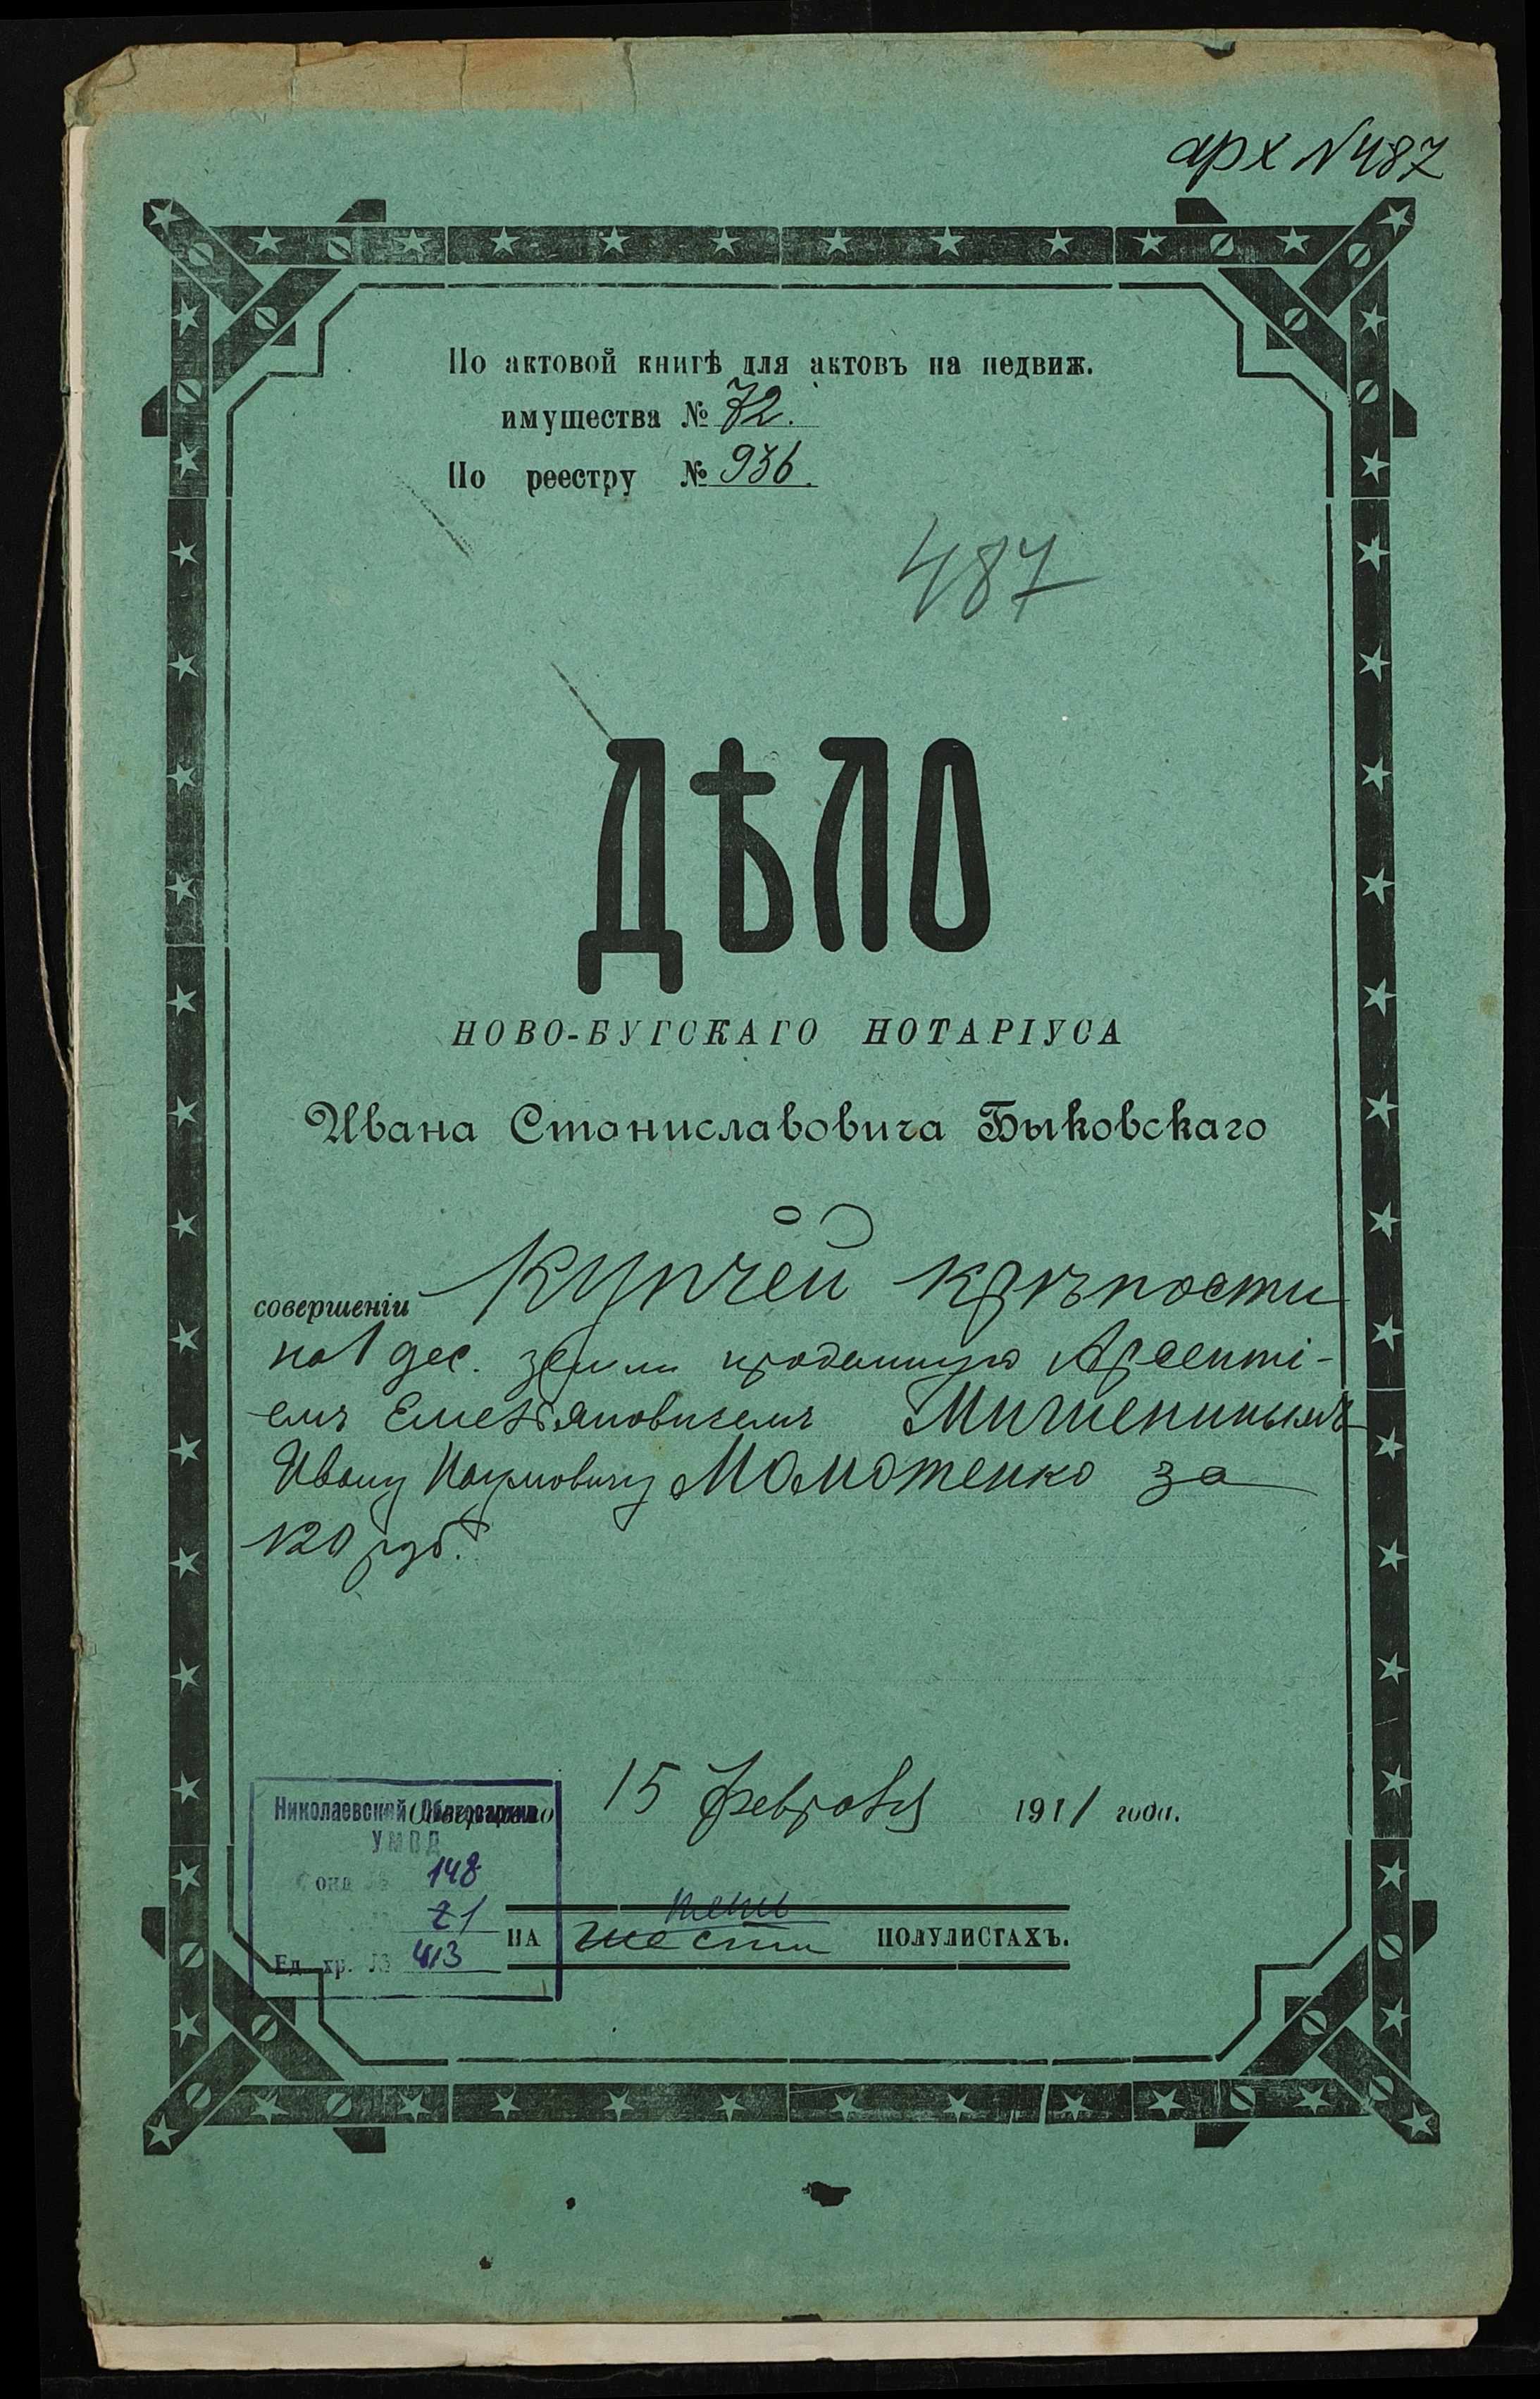 арх N 487
По актовой книгѣ для актовъ на недвиж.
имущества № 72.
По реестру № 936.
487
ДѢЛО
НОВО-БУГСКАГО НОТАРІУСА
Ивана Станиславовича Быковскаго
О
совершеніи Купчей крѣпости
на 1 дес. земли проданную Арсенті-
емъ Емельяновичемъ Мишенинымъ
Ивану Наумовичу Момотенко за
120 руб.
Совершено 15 февраля 1911 года.
Николаевский Облгосархив
УМВД
Фонд № 148
21
Ед. хр. № 413
пяти
НА шести ПОЛУЛИСТАХЪ.